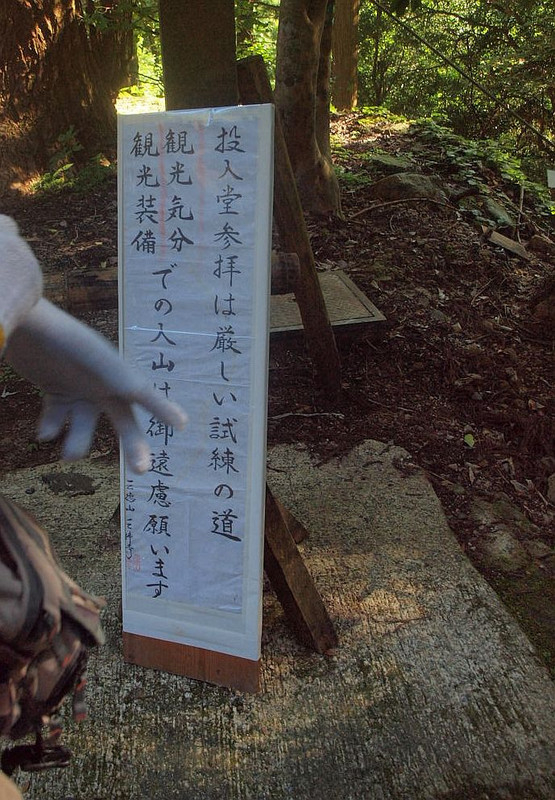 投入堂参拝は厳しい試練の道
観光気分
観光装備
での入山は御遠慮願います
三徳山三佛寺